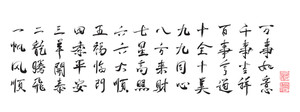 一帆風順
二龍騰飛
三羊開泰
四季平安
五福臨門
六六大順
七星高照
八方來財
九九同心
十全十美
百事亨通
千事吉祥
万事如意